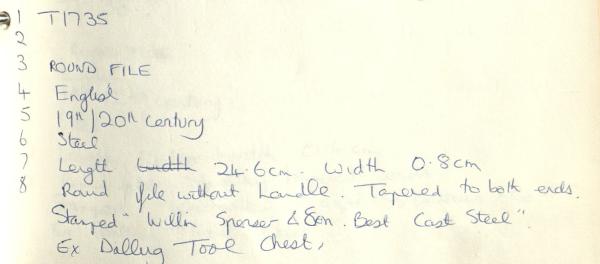 1 T1735
2
3 ROUND FILE
4 English
5 19th/20th century
6 Steel
7 Length width 24.6cm. Width 0.8cm
8 Round file without handle. Tapered to both ends.
Stamped "Willm Spenser & Son. Best Cast Steel".
Ex Dalling Tool Chest.